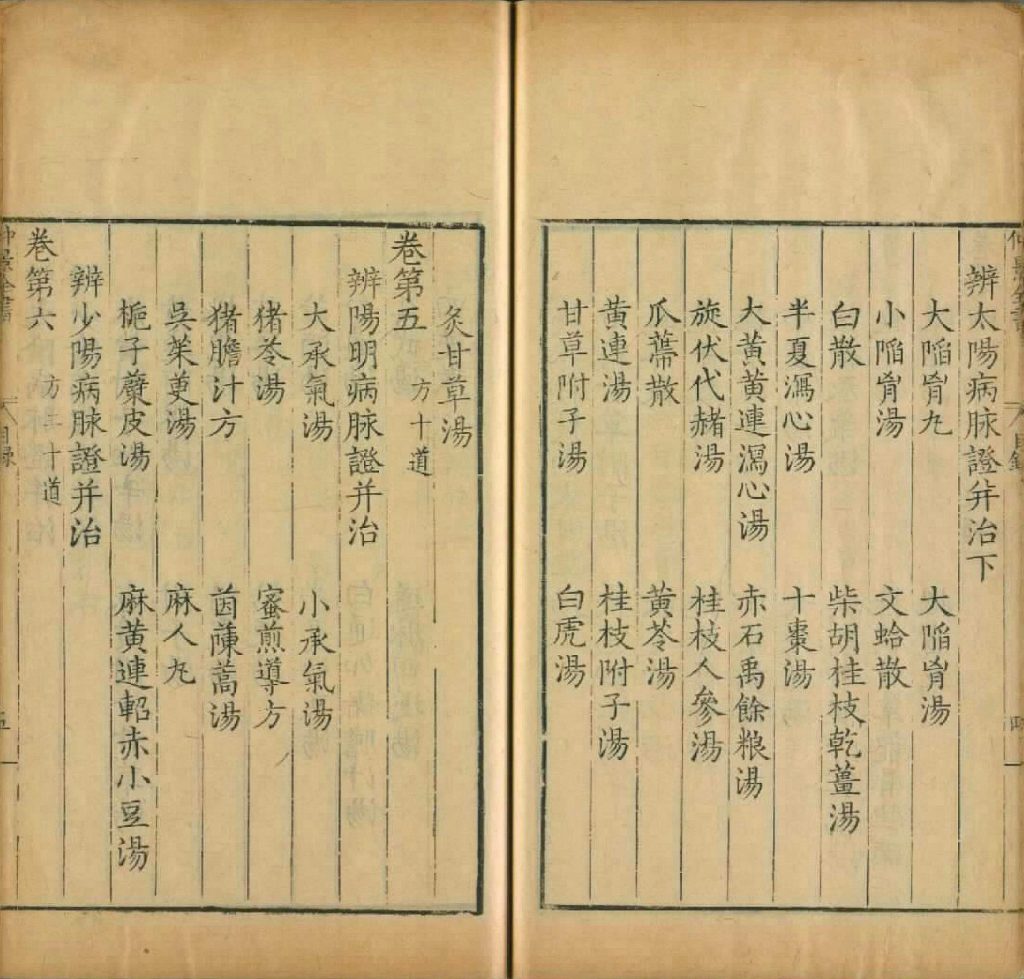 辨太陽病脉證并治下
大陷胷丸 大陷胷湯
小陷胷湯 文蛤散
白散 柴胡桂枝乾薑湯
半夏瀉心湯 十棗湯
大黄黄連瀉心湯 赤石禹餘粮湯
旋伏代赭湯 桂枝人參湯
瓜蔕散 黄芩湯
黄連湯 桂枝附子湯
甘草附子湯 白虎湯
炙甘草湯
卷第五 方十道
辨陽明病脉證并治
大承氣湯 小承氣湯
猪苓湯 蜜煎導方
猪膽汁方 茵蔯蒿湯
吳茱萸湯 麻人丸
梔子蘗皮湯 麻黄連軺赤小豆湯
辨少陽病脉證并治
卷第六 方十道
仲景全書
目錄
五